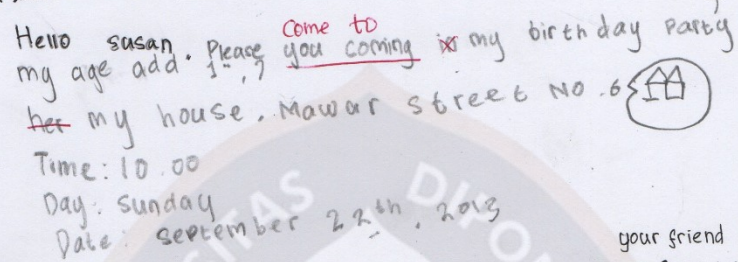 Come to
Hello susan. Please you coming is my birthday party
my age add. 1
her my house. Mawar street NO.65
Time: 10.00
Day: Sunday
Date: September 22th, 2013
your friend
ITAS DIPO